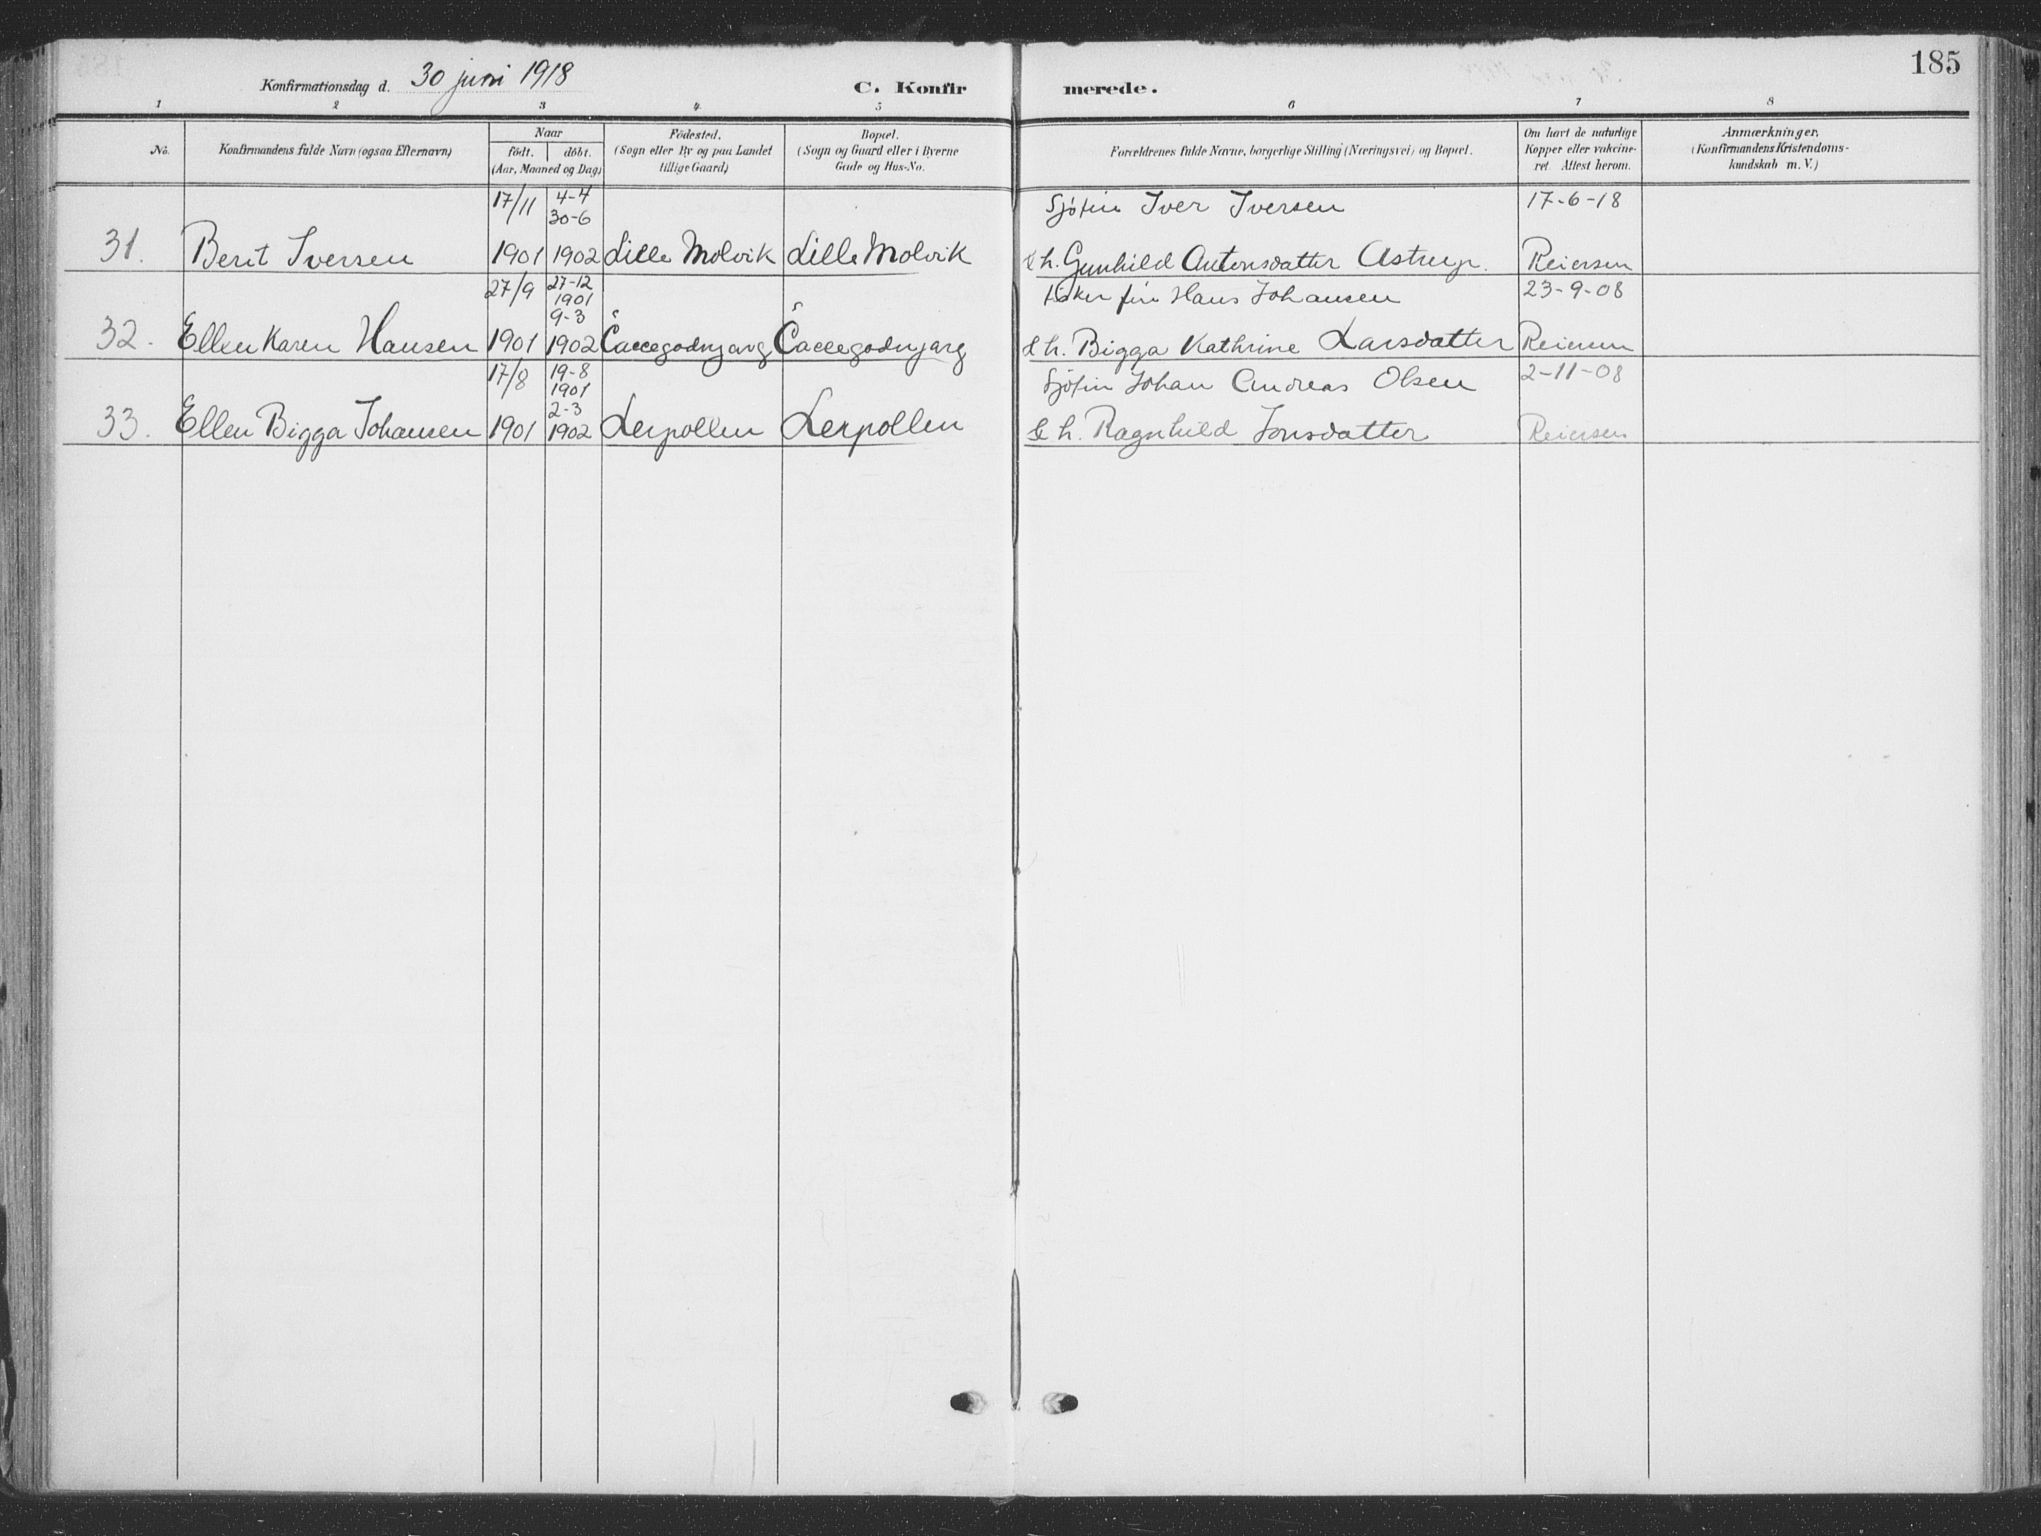 185
Konfirmationsdag d. 30 juni 1918
C. Konfirmerede.
1 2 3 4 5 6 7 8
No.
Konfirmandens fulde Navn (ogsaa Efternavn)
Naar
født. døbt.
(Aar, Maaned og Dag)
Fødested.
(Sogn eller By og paa Landet
tillige Gaard)
Bopæl.
(Sogn og Gaard eller i Byerne
Gade og Hus-No.
Forældrenes fulde Navne, borgerlige Stilling (Næringsvei) og Bopæl.
Om havt de naturlige
Kopper eller vakcine-
ret. Attest herom.
Anmærkninger.
(Konfirmandens Kristendoms-
kundskab m. V.)
17/11 4-4 Sjøfin Iver Iversen 17-6-18
30-6
31. Berit Iversen 1901 1902 Lille Molvik Lille Molvik & h. Gunhild Antonsdatter Astrup. Reiersen
27/9 27-12 fin Hans Johansen 23-9-08
1901
9-3
32. Ellen Karen Hansen 1901 1902 Čaccegadnjarg Čaccegadnjarg & h. Bigga Kathrine Larsdatter Reiersen
17/8 19-8 Sjøfin Johan Andreas Olsen 2-11-08
1901
2-3
33. Ellen Bigga Johansen 1901 1902 Lerpollen Lerpollen & h. Ragnhild Jonsdatter Reiersen